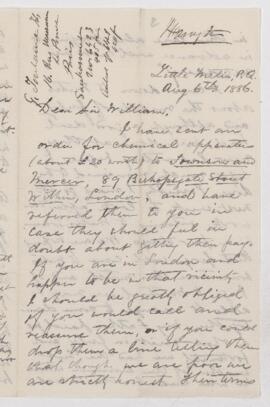 Little Metis, P.Q.
Aug 6th, 1886.
Dear Sir William,
I have sent an
order for chemical apparatus
(about £20 worth) to Townson and
Mercer 89 Bishopsgate Street
Within, London, and have
referred them to you in
case they should feel in
doubt about getting their pay.
If you are in London and
happen to be in that vicinity
I should be greatly obliged
if you would call and
reassure them, or if you could
drop them a line telling them
that though we are poor we
are strictly honest. Their terms